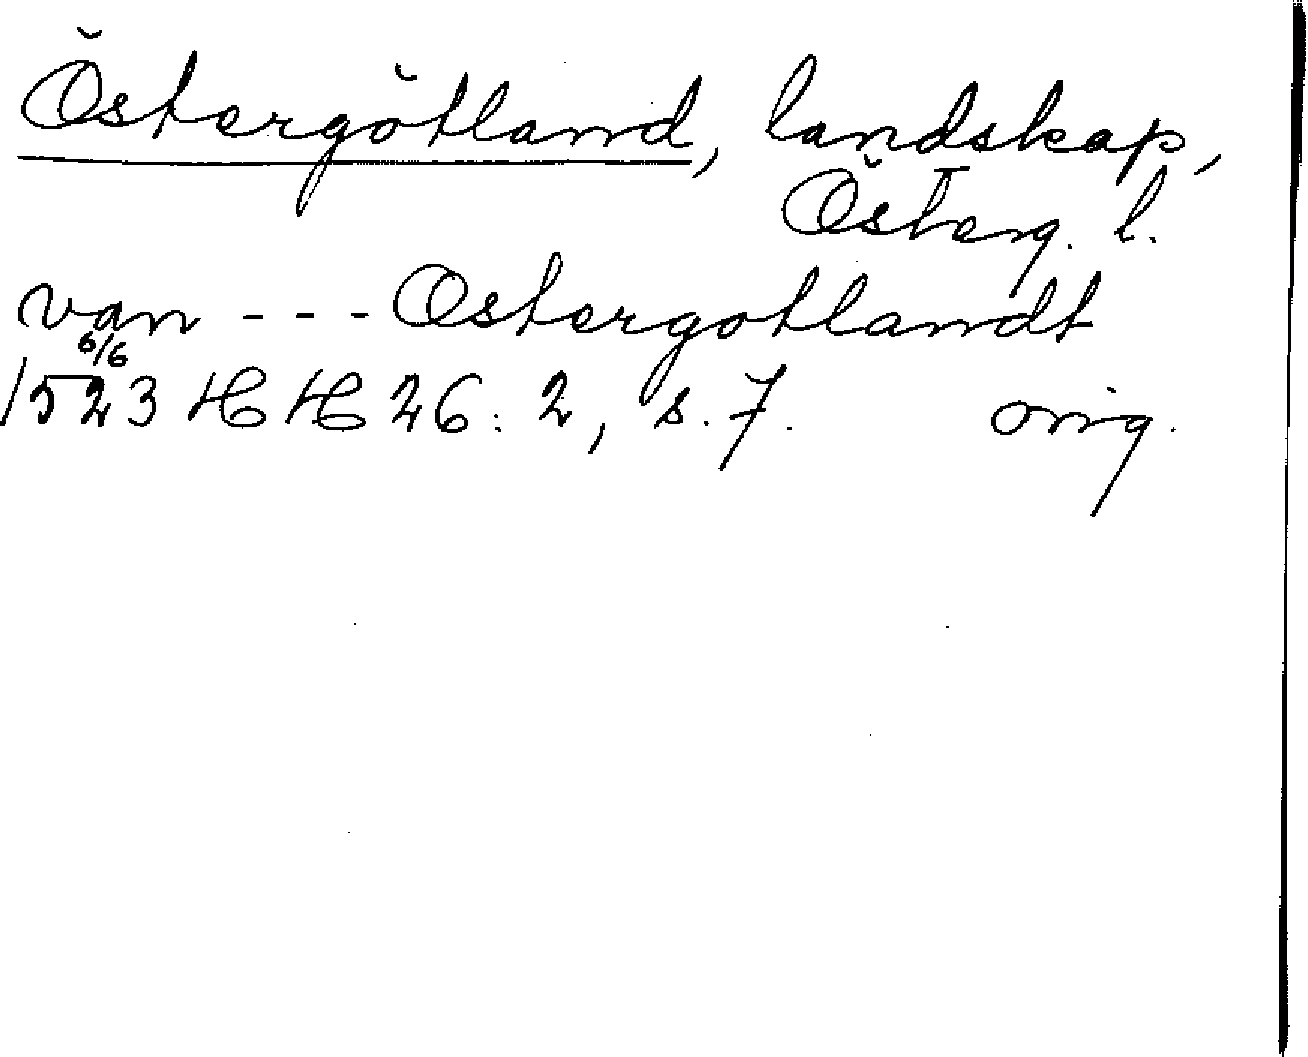 Östergötland, landskap,
Österg. l.
van - - - Ostergotlandt
6/6
1523 HH 26: 2, s. 7. orig.